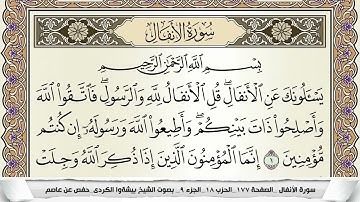 سُورَةُ الأَنفَالِ
بِسْمِ اللَّهِ الرَّحْمَٰنِ الرَّحِيمِ
يَسْـَٔلُونَكَ عَنِ الْأَنفَالِ ۖ قُلِ الْأَنفَالُ لِلَّهِ وَالرَّسُولِ ۖ فَاتَّقُوا اللَّهَ
وَأَصْلِحُوا ذَاتَ بَيْنِكُمْ ۖ وَأَطِيعُوا اللَّهَ وَرَسُولَهُ إِن كُنتُم
مُّؤْمِنِينَ ١ إِنَّمَا الْمُؤْمِنُونَ الَّذِينَ إِذَا ذُكِرَ اللَّهُ وَجِلَتْ
سورة الأنفال _ الصفحة ١٧٧_ الحزب ١٨_ الجزء ٩_ بصوت الشيخ بيشةوا الكردي_ حفص عن عاصم